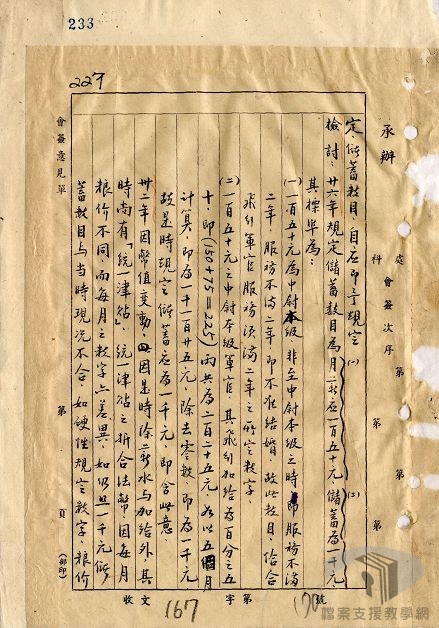 233
227
承辦
處
科
會簽次序
第
第
第
定,儲蓄數目,自應即予規定
檢討:廿六年規定儲蓄數目為月薪在一百五十元,儲蓄為一千元
其標準為:
(一)一百五十元為中尉本級 非至中尉本級之時,即服務不滿
二年,服務不滿二年,即不准結婚,故此數目,恰合
飛行軍官服務須滿二年之所定數字,
(二)一百五十元之中尉本級軍官,其飛行加給為百分之五
十,即(150+75=225)兩共為二百二十五元,為以五個月
計算,即為一千一百廿五元,除去零數,即為一千元
故是時規定儲蓄應為一千元,即含此意。
卅二年因幣值變動,因是時除薪水與加給外,其
時尚有「統一津貼」,統一津貼之折合法幣因每月
糧价不同,而每月之數字亦差異,如仍照一千元儲
蓄數目與當時現況不合,如硬性規定數字,糧价
會簽意見單
第
頁
(印部)
收文
字第
號
167
170
檔案支援教學網